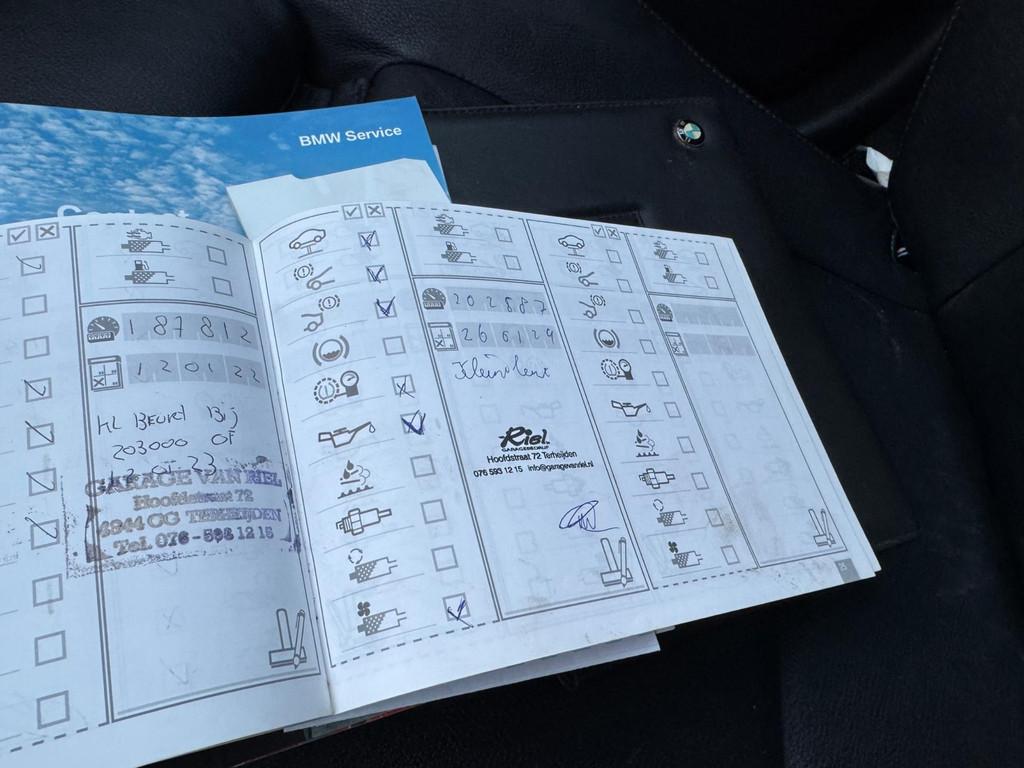 BMW Service
187812
120122
KL BEURT Bij
203000 OF
12 01 23
GARAGE VAN RIEL
Hoofdstraat 72
4844 CG TERHEIJDEN
Tel. 076 - 593 12 15
202887
26 6 1 24
Riel
GARAGEBEDRIJF
Hoofdstraat 72 Terheijden
076 593 12 15 info@garagevanriel.nl